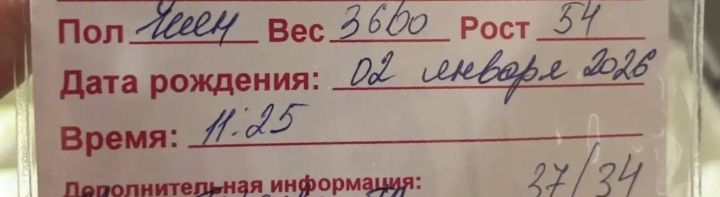 Пол Жен Вес 3660 Рост 54
Дата рождения: 02 января 2026
Время: 11:25
Дополнительная информация: 37/34